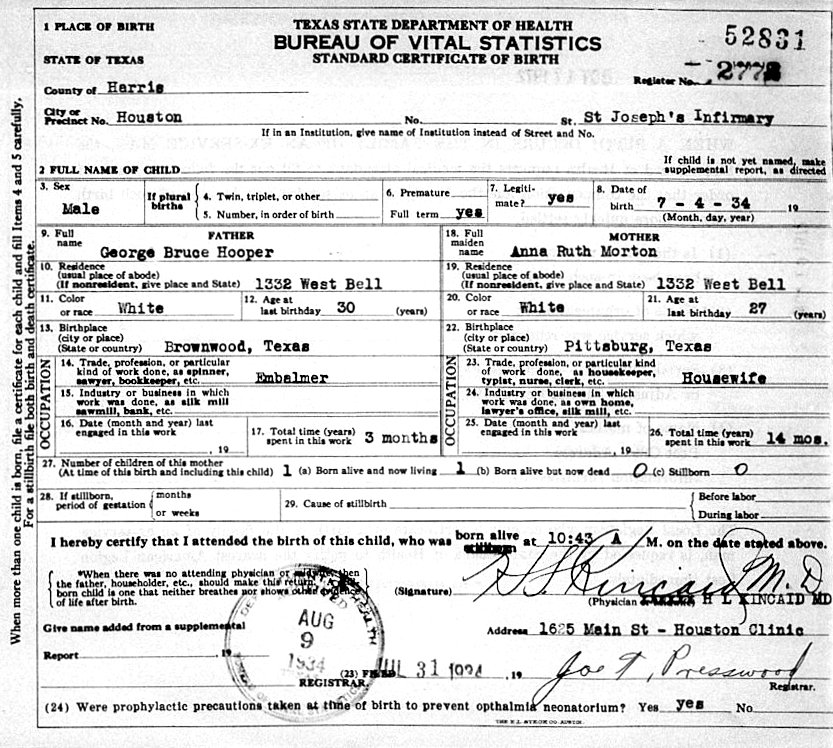 1 PLACE OF BIRTH
TEXAS STATE DEPARTMENT OF HEALTH
BUREAU OF VITAL STATISTICS
STANDARD CERTIFICATE OF BIRTH
52831
STATE OF TEXAS
Register No. 2772
County of Harris
City or Precinct No. Houston No. St. St Joseph's Infirmary
If in an Institution, give name of Institution instead of Street and No.
2 FULL NAME OF CHILD
If child is not yet named, make supplemental report, as directed
3. Sex Male
If plural births
4. Twin, triplet, or other
5. Number, in order of birth
6. Premature
Full term yes
7. Legitimate? yes
8. Date of birth 7 - 4 - 34 19
(Month, day, year)
9. Full name FATHER
George Bruce Hooper
18. Full maiden name MOTHER
Anna Ruth Morton
10. Residence
(usual place of abode)
(If nonresident, give place and State) 1332 West Bell
19. Residence
(usual place of abode)
(If nonresident, give place and State) 1332 West Bell
11. Color or race White
12. Age at last birthday 30 (years)
20. Color or race White
21. Age at last birthday 27 (years)
13. Birthplace
(city or place)
(State or country) Brownwood, Texas
22. Birthplace
(city or place)
(State or country) Pittsburg, Texas
OCCUPATION
14. Trade, profession, or particular
kind of work done, as spinner,
sawyer, bookkeeper, etc. Embalmer
15. Industry or business in which
work was done, as silk mill
sawmill, bank, etc.
16. Date (month and year) last
engaged in this work
, 19
17. Total time (years)
spent in this work 3 months
OCCUPATION
23. Trade, profession, or particular kind
of work done, as housekeeper,
typist, nurse, clerk, etc. Housewife
24. Industry or business in which
work was done, as own home,
lawyer's office, silk mill, etc.
25. Date (month and year) last
engaged in this work
, 19
26. Total time (years)
spent in this work 14 mos.
27. Number of children of this mother
(At time of this birth and including this child) 1 (a) Born alive and now living 1 (b) Born alive but now dead 0 (c) Stillborn 0
28. If stillborn,
period of gestation
months
or weeks
29. Cause of stillbirth
Before labor
During labor
I hereby certify that I attended the birth of this child, who was born alive at 10:43 A M. on the date stated above.
*When there was no attending physician or midwife, then
the father, householder, etc., should make this return.
born child is one that neither breathes nor shows other evidence
of life after birth.
(Signature) H L Kincaid M.D
(Physician H L KINCAID MD
Give name added from a supplemental
Address 1625 Main St - Houston Clinic
Report , 19
AUG
9
1934
(23) FILED JUL 31 1934 , 19 Joe T. Presswood
REGISTRAR.
Registrar.
(24) Were prophylactic precautions taken at time of birth to prevent opthalmia neonatorium? Yes yes No
When more than one child is born, file a certificate for each child and fill Items 4 and 5 carefully.
For a stillbirth file both birth and death certificate.